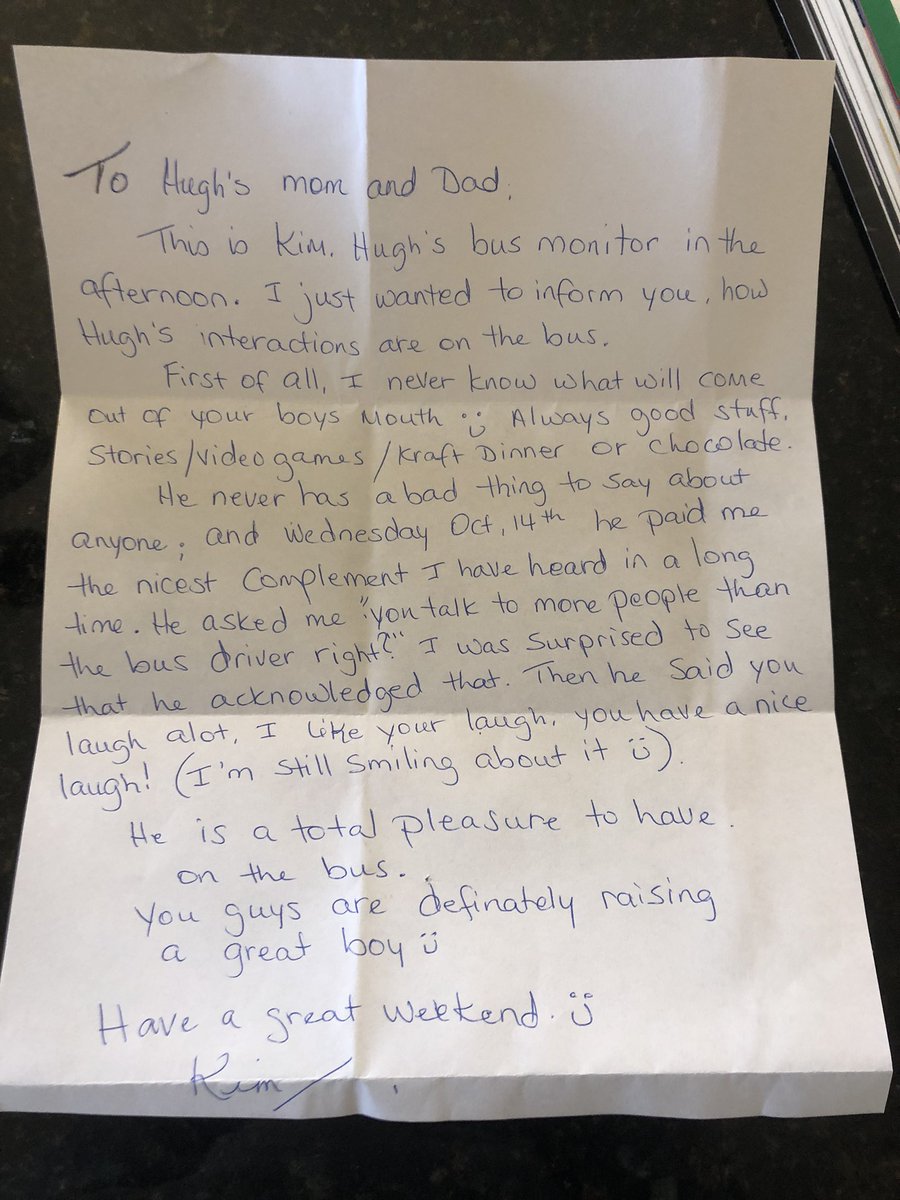 To Hugh's mom and Dad,
This is Kim. Hugh's bus monitor in the
afternoon. I just wanted to inform you, how
Hugh's interactions are on the bus.
First of all, I never know what will come
out of your boys Mouth :) Always good stuff.
Stories/video games/Kraft Dinner or chocolate.
He never has a bad thing to say about
anyone; and Wednesday Oct, 14th he paid me
the nicest Complement I have heard in a long
time. He asked me "you talk to more people than
the bus driver right?" I was surprised to see
that he acknowledged that. Then he said you
laugh alot, I like your laugh, you have a nice
laugh! (I'm still smiling about it :)).
He is a total pleasure to have.
on the bus.
You guys are definately raising
a great boy :)
Have a great weekend. :)
Kim